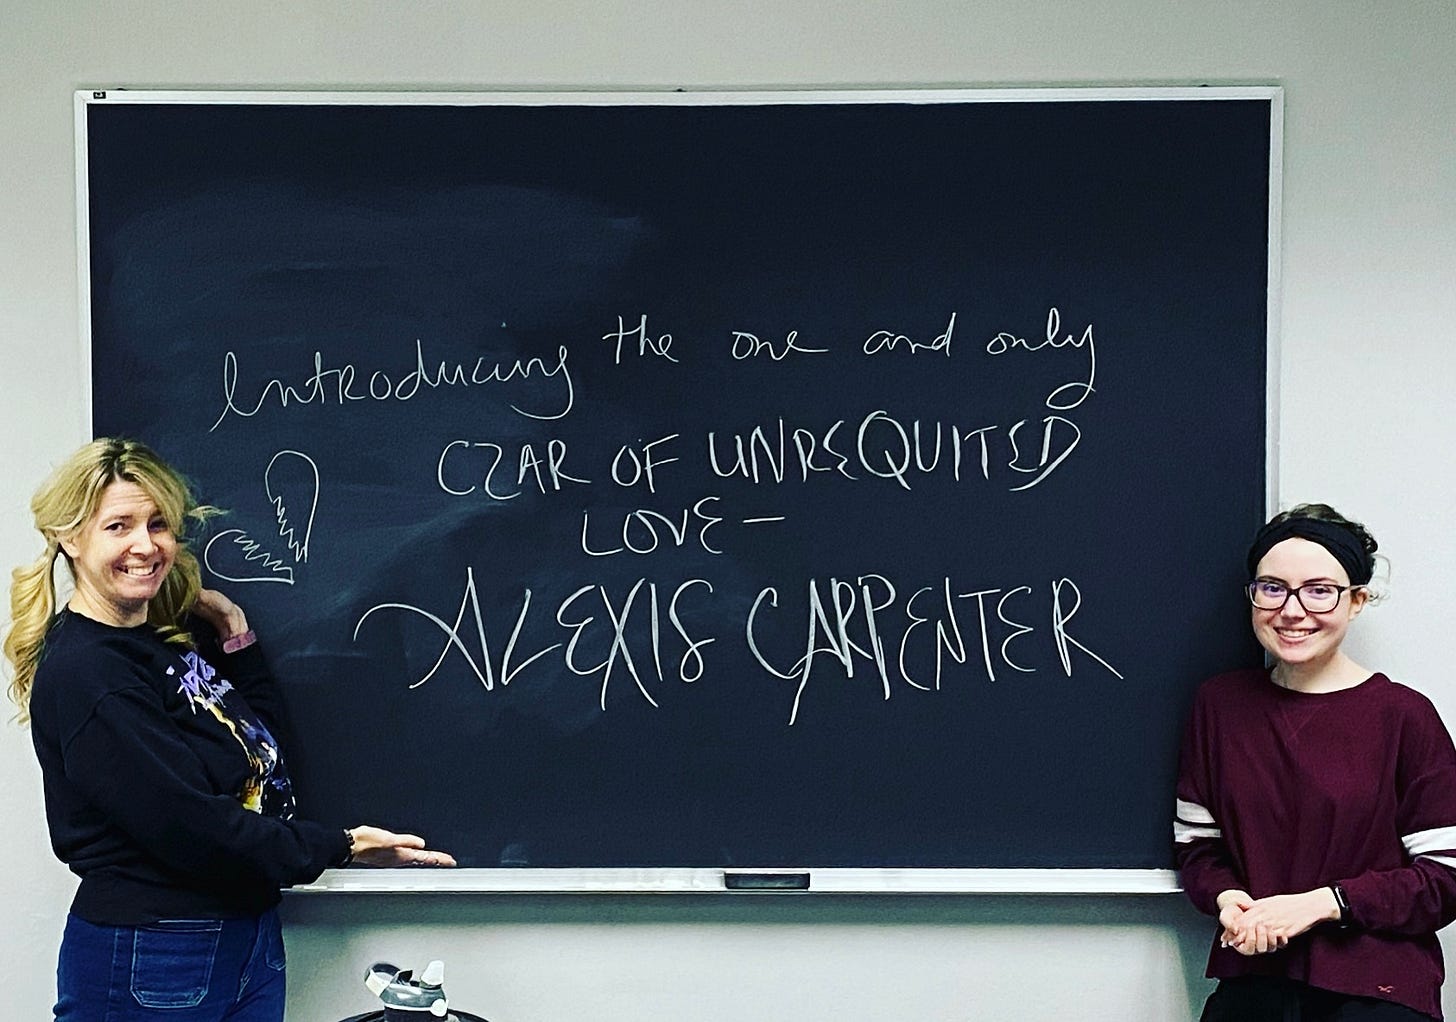 Introducing the one and only
CZAR OF UNREQUITED
LOVE—
ALEXIS CARPENTER